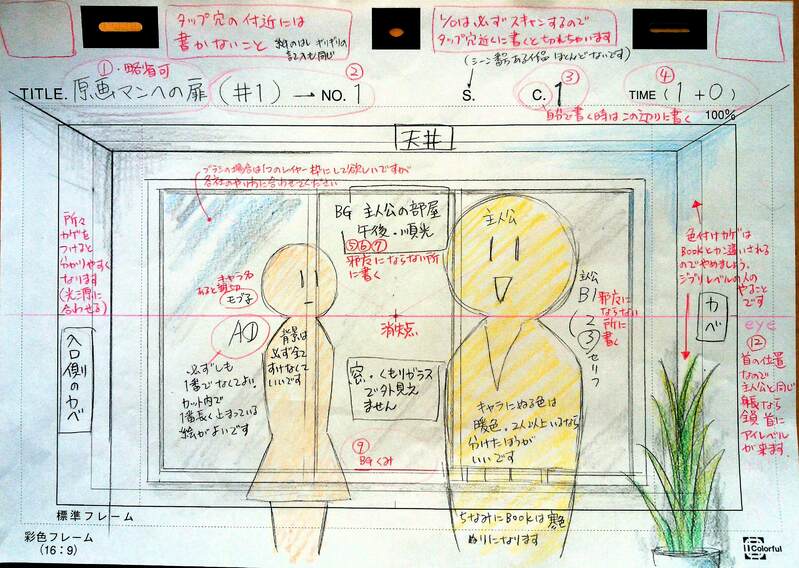 タップ穴の付近には
書かないこと
1/0は必ずスキャンするので
タップ穴近くに書くと切れちゃいます
(シーン番号ある作品 ほとんどないです)
①・略省可
②
③
④
TITLE. 原画マンへの扉 (#1) → NO. 1
S.
C. 1
TIME ( 1 + 0 )
自分で書く時はこの辺りに書く
100%
天井
ブラシの場合は1つのレイヤー枠にして欲しいですが
各社のやり方に合わせてください
BG 主人公の部屋
午後・順光
⑤⑥⑦
邪魔にならない所
に書く
主人公
所々
カゲを
つけると
分かりやすく
なります
(光源に
合わせる)
色付けカゲは
BOOKとカン違いされる
のでやめましょう。
ジブリレベルの人の
やることです
キャラ名
あると親切
モブ子
A①
・必ずしも
1番でなくてよい
カット内で
1番長く止まっている
絵がよいです
背景は
必ず全て
すけなくて
いいです
消失点
主人公
B1
2
③
セリフ
邪魔に
ならない
所に
書く
カベ
eye
入口側のカベ
窓・くもりガラス
で外見え
ません
キャラにぬる色は
暖色・2人以上いるなら
分けたほうが
いいです
⑫
首の位置
なので
主人公と同じ
身長なら
全員 首に
アイレベル
が来ます
⑨
BGくみ
標準フレーム
彩色フレーム
(16:9)
ちなみにBOOKは寒色
ぬりになります
Colorful